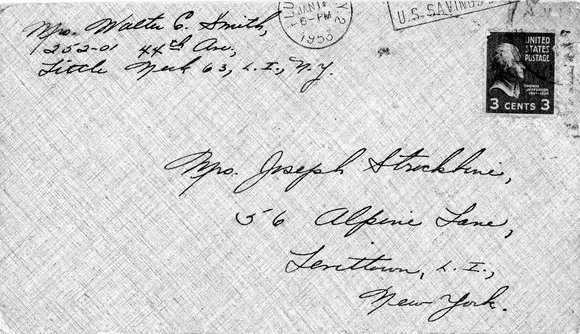 Mrs. Walter C. Smith,
252-01 44th Ave.,
Little Neck 63, L.I., N.Y.
JAN
6-PM
1953
N.Y. 2
U.S. SAVINGS
UNITED
STATES
POSTAGE
THOMAS
JEFFERSON
3 CENTS 3
Mrs. Joseph Strockbine,
56 Alpine Lane,
Levittown, L.I.,
New York.